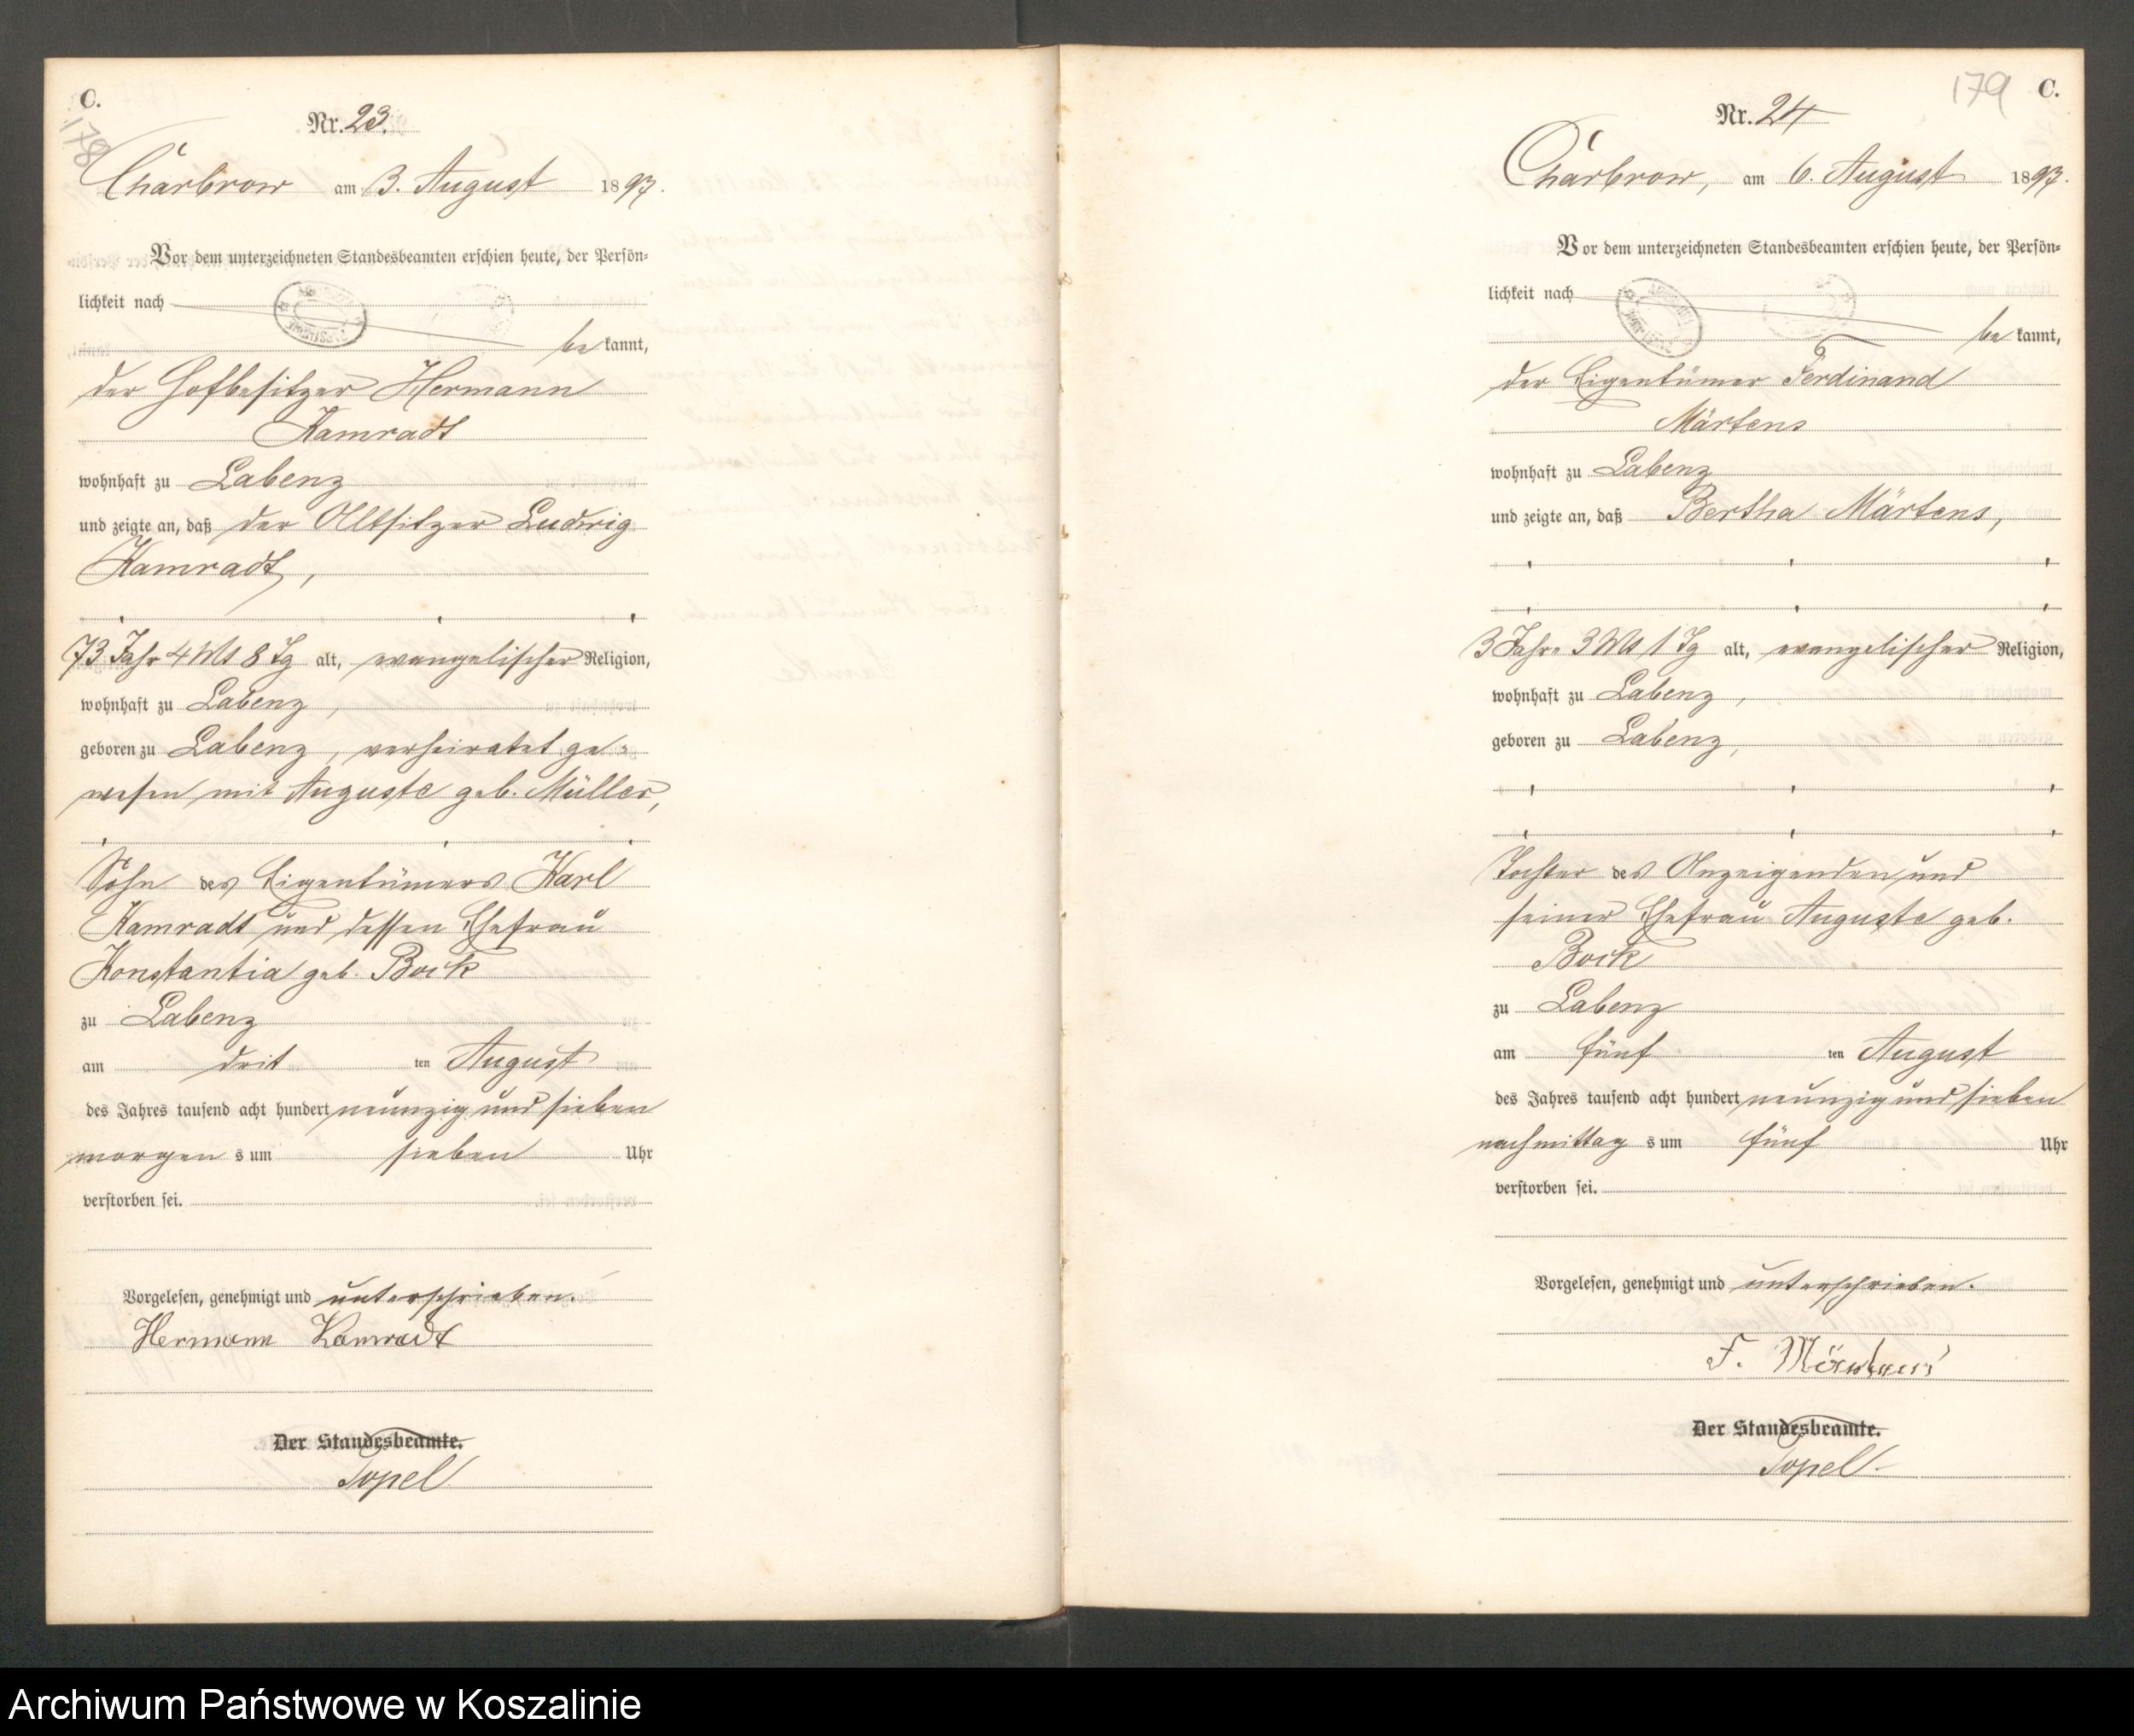 C.
178
Nr. 23.
Charbrow am 3. August 1897.
Vor dem unterzeichneten Standesbeamten erschien heute, der Persön=
lichkeit nach
be kannt,
der Hofbesitzer Hermann
Kamradt
wohnhaft zu Labenz
und zeigte an, daß der Altsitzer Ludwig
Kamradt,
73 Jahr 4 Mt 8 Tg alt, evangelischer Religion,
wohnhaft zu Labenz,
geboren zu Labenz, verheiratet ge=
wesen mit Auguste geb. Müller,
Sohn des Eigentümers Karl
Kamradt und dessen Ehefrau
Konstantia geb. Bock
zu Labenz
am drit ten August
des Jahres tausend acht hundert neunzig und sieben
morgen s um sieben Uhr
verstorben sei.
Vorgelesen, genehmigt und unterschrieben.
Hermann Kamradt
Der Standesbeamte.
Topel
179 C.
Nr. 24
Charbrow, am 6. August 1897.
Vor dem unterzeichneten Standesbeamten erschien heute, der Persön=
lichkeit nach
be kannt,
der Eigentümer Ferdinand
Märtens
wohnhaft zu Labenz
und zeigte an, daß Bertha Märtens,
3 Jahre 3 Mt 1 Tg alt, evangelischer Religion,
wohnhaft zu Labenz,
geboren zu Labenz,
Tochter des Anzeigenden und
seiner Ehefrau Auguste geb.
Bock
zu Labenz
am fünf ten August
des Jahres tausend acht hundert neunzig und sieben
nachmittag s um fünf Uhr
verstorben sei.
Vorgelesen, genehmigt und unterschrieben.
F. Märtens
Der Standesbeamte.
Topel
Archiwum Państwowe w Koszalinie